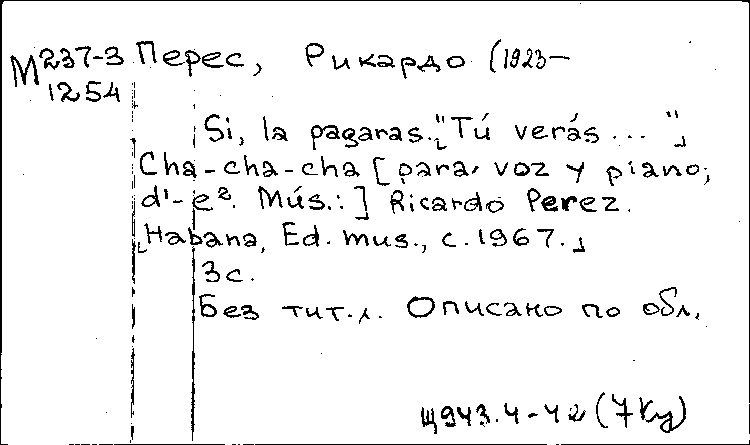 М 237-3 Перес, Рикардо (1923–
1254
Si, la pagaras. ⌊"Tú verás... "⌋
Cha-cha-cha [para voz y piano;
d¹-e². Mús.:] Ricardo Perez.
⌊Habana, Ed. mus., c. 1967.⌋
3 с.
Без тит. л. Описано по обл.
Щ943.4-42 (7Ку)